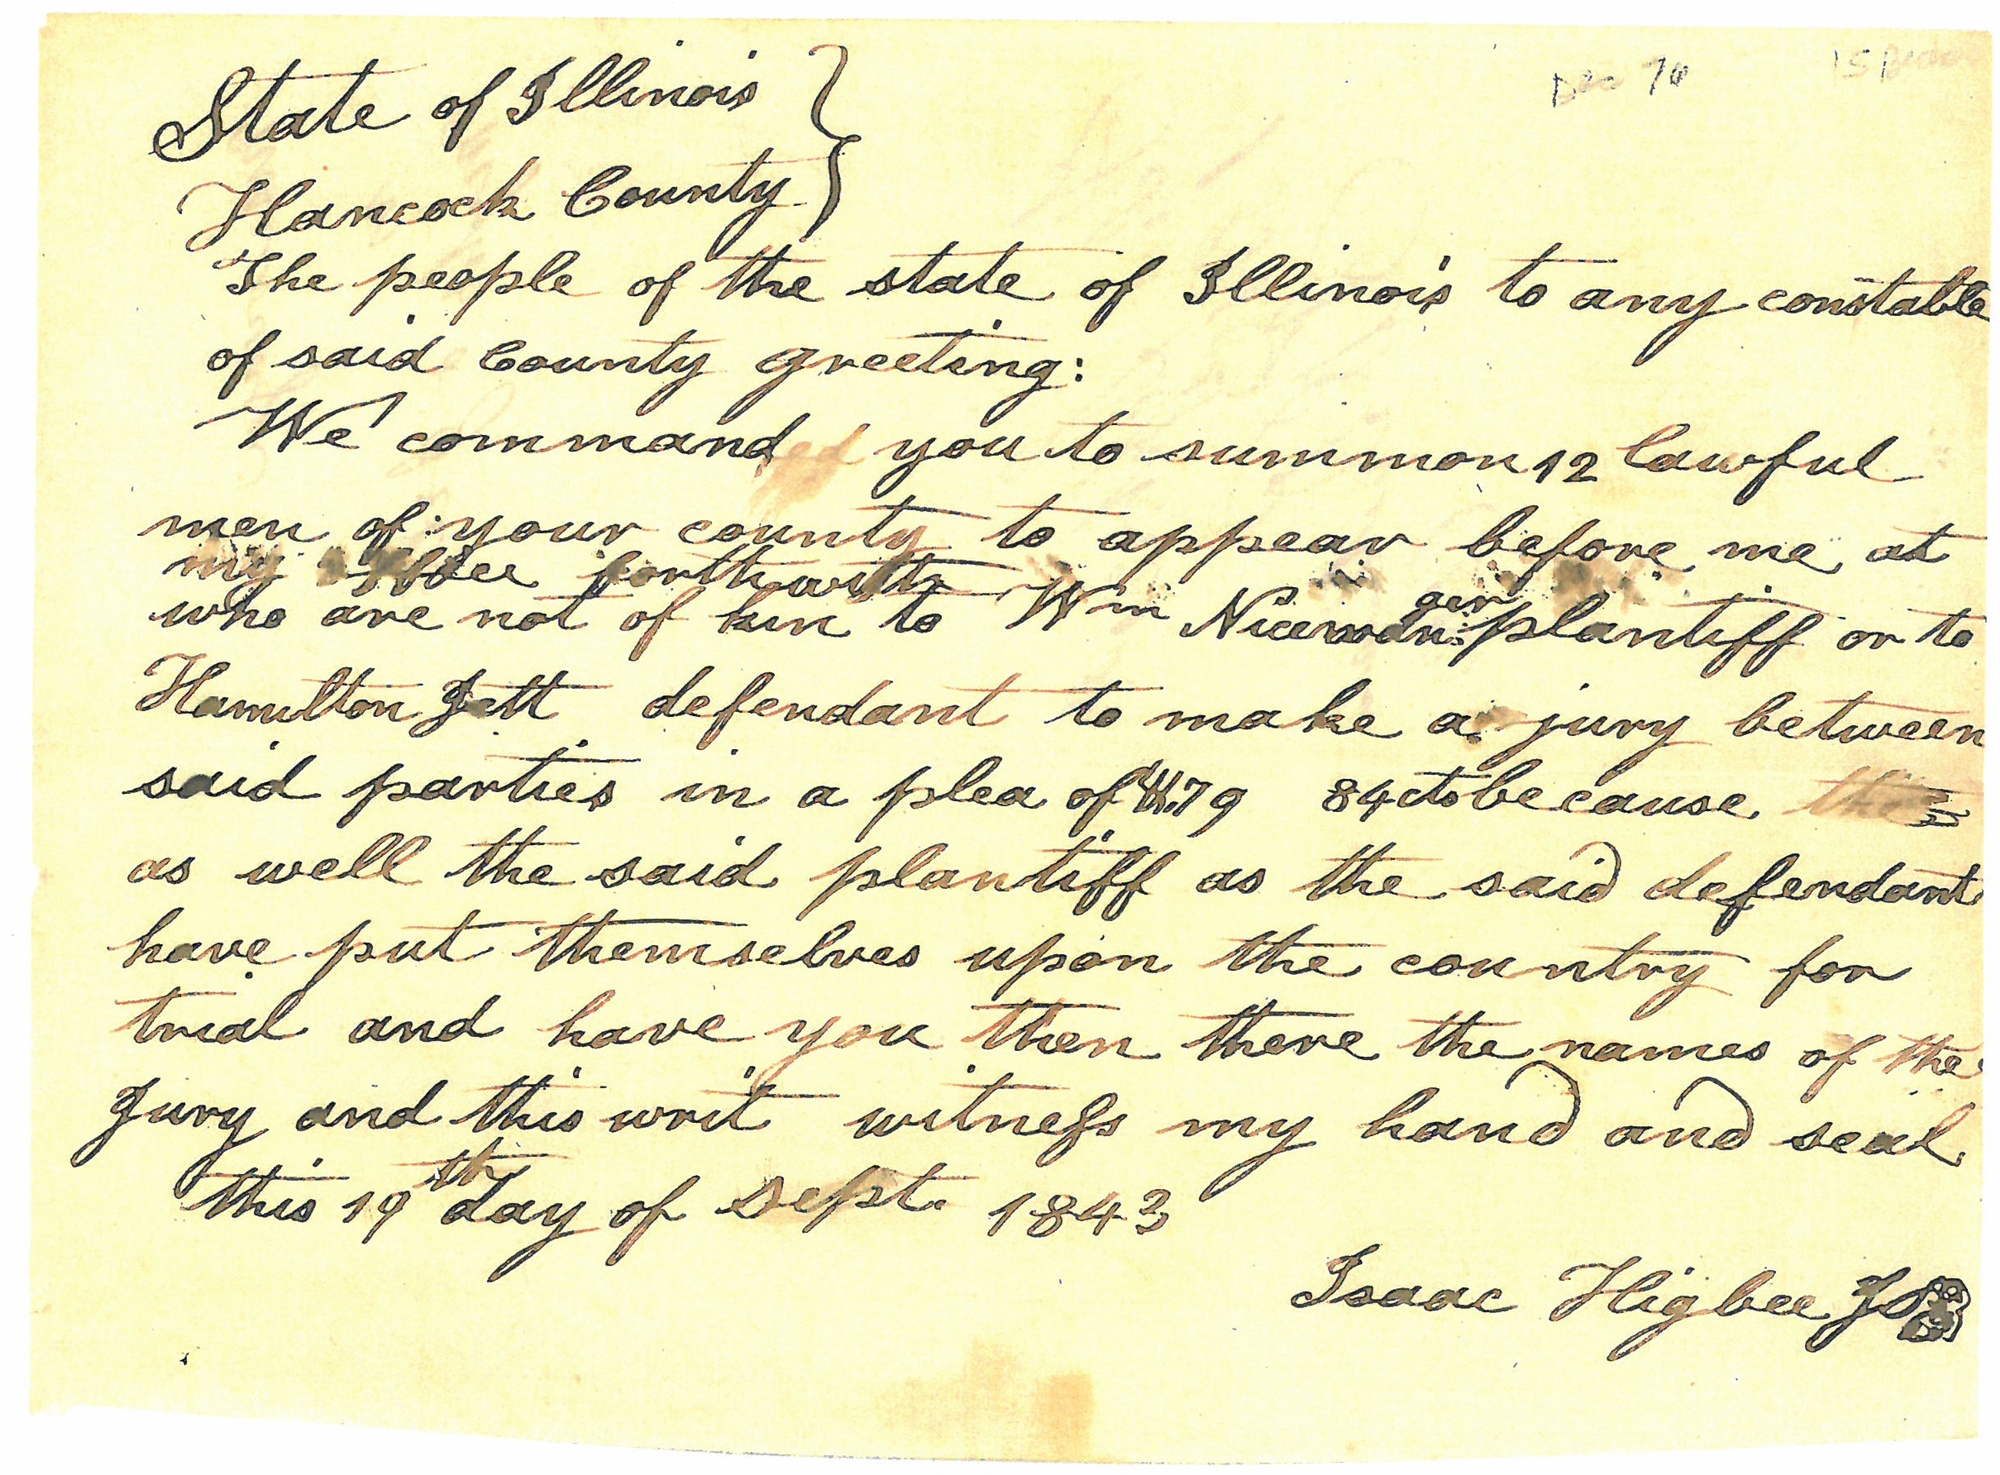 Dec 70
State of Illinois }
Hancock County }
The people of the state of Illinois to any constable
of said County greeting:
We command you to summon 12 lawful
men of your county to appear before me at
my office forthwith
who are not of kin to Wm plantiff or to
Hamilton Jett defendant to make a jury between
said parties in a plea of 79 84 cts because
as well the said plantiff as the said defendant
have put themselves upon the country for
trial and have you then there the names of the
Jury and this writ witness my hand and seal
this 19th day of Sept. 1843
Isaac Higbee JP